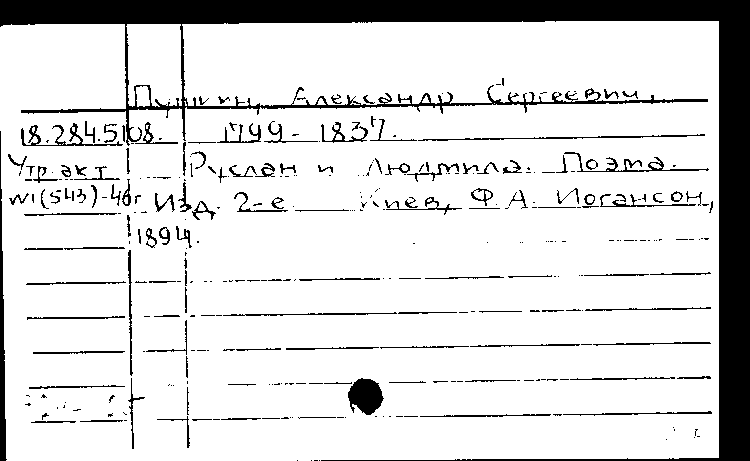 Пушкин, Александр Сергеевич,
18.284.5108. 1799 - 1837.
Утр акт Руслан и Людмила. Поэма.
N1(543)-46г Изд. 2-е Киев, Ф.А. Иогансон,
1894.